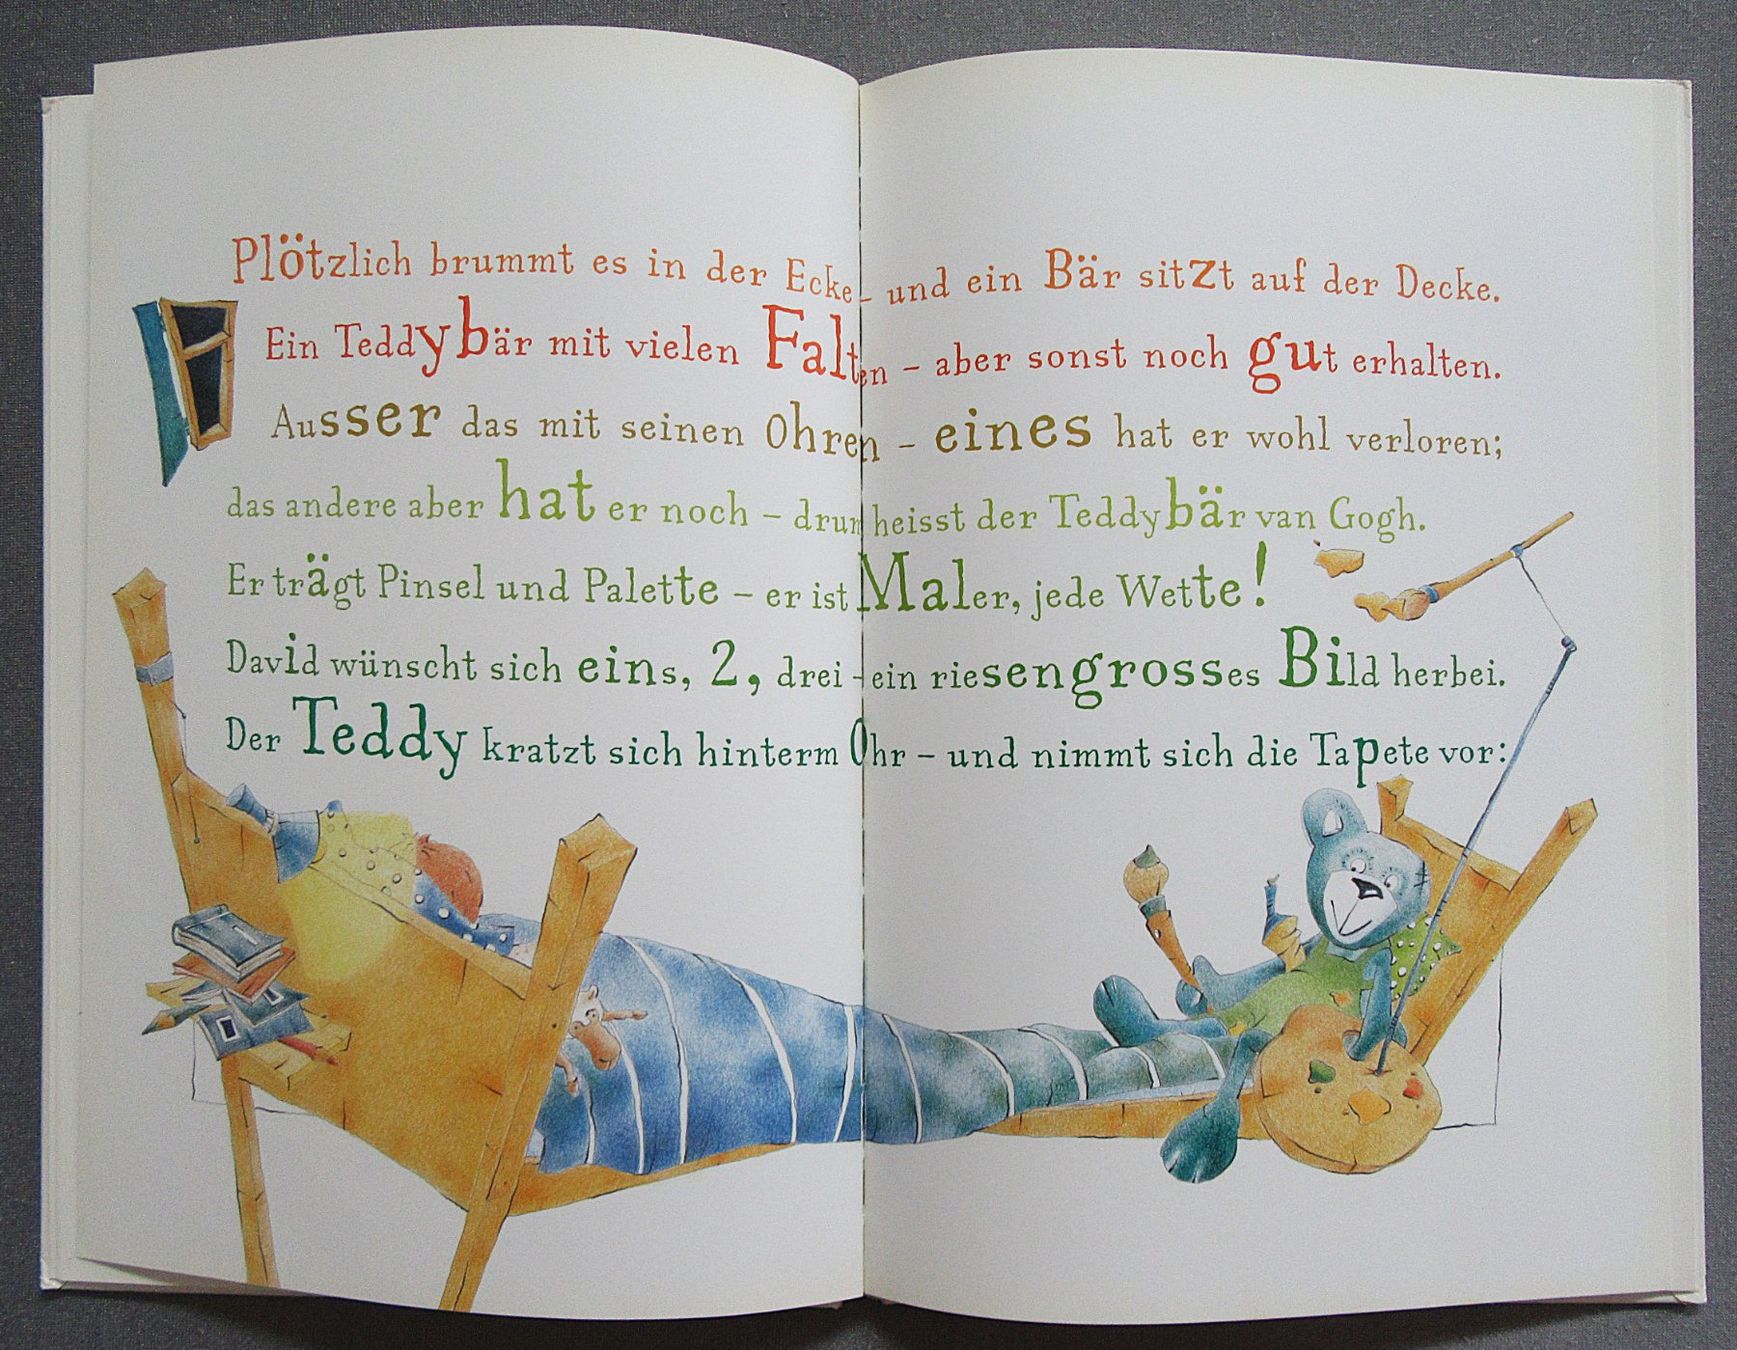 Plötzlich brummt es in der Ecke – und ein Bär sitzt auf der Decke.
Ein Teddybär mit vielen Falten – aber sonst noch gut erhalten.
Ausser das mit seinen Ohren – eines hat er wohl verloren;
das andere aber hat er noch – drum heisst der Teddybär van Gogh.
Er trägt Pinsel und Palette – er ist Maler, jede Wette!
David wünscht sich eins, 2, drei – ein riesengrosses Bild herbei.
Der Teddy kratzt sich hinterm Ohr – und nimmt sich die Tapete vor: